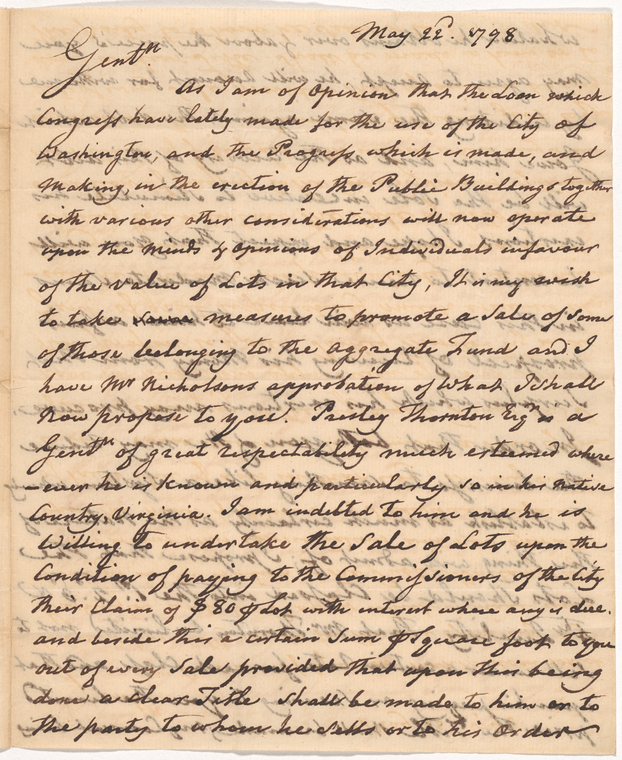 May 22d. 1798
Gentn
As I am of Opinion that the Loan which
Congress have lately made for the use of the City of
Washington, and the Progress which is made, and
Making, in the erection of the Public Buildings together
with various other considerations will now operate
upon the minds & opinions of Individuals in favour
of the value of Lots in that City, It is my wish
to take some measures to promote a Sale of some
of those belonging to the aggregate Fund and I
have Mr Nicholsons approbation of what I shall
now propose to you. Presley Thornton Esqr is a
Gentn of great respectability much esteemed where
-ever he is known and particularly so in his native
Country, Virginia. I am indebted to him and he is
Willing to undertake the Sale of Lots upon the
Condition of paying to the Commissioners of the City
their Claim of $80 ⅌ Lot with interest where any is due.
and beside this a certain Sum ⅌ Square foot to you
out of every Sale provided that upon this being
done a clear Title shall be made to him or to
the party to whom he Sells or to his Order